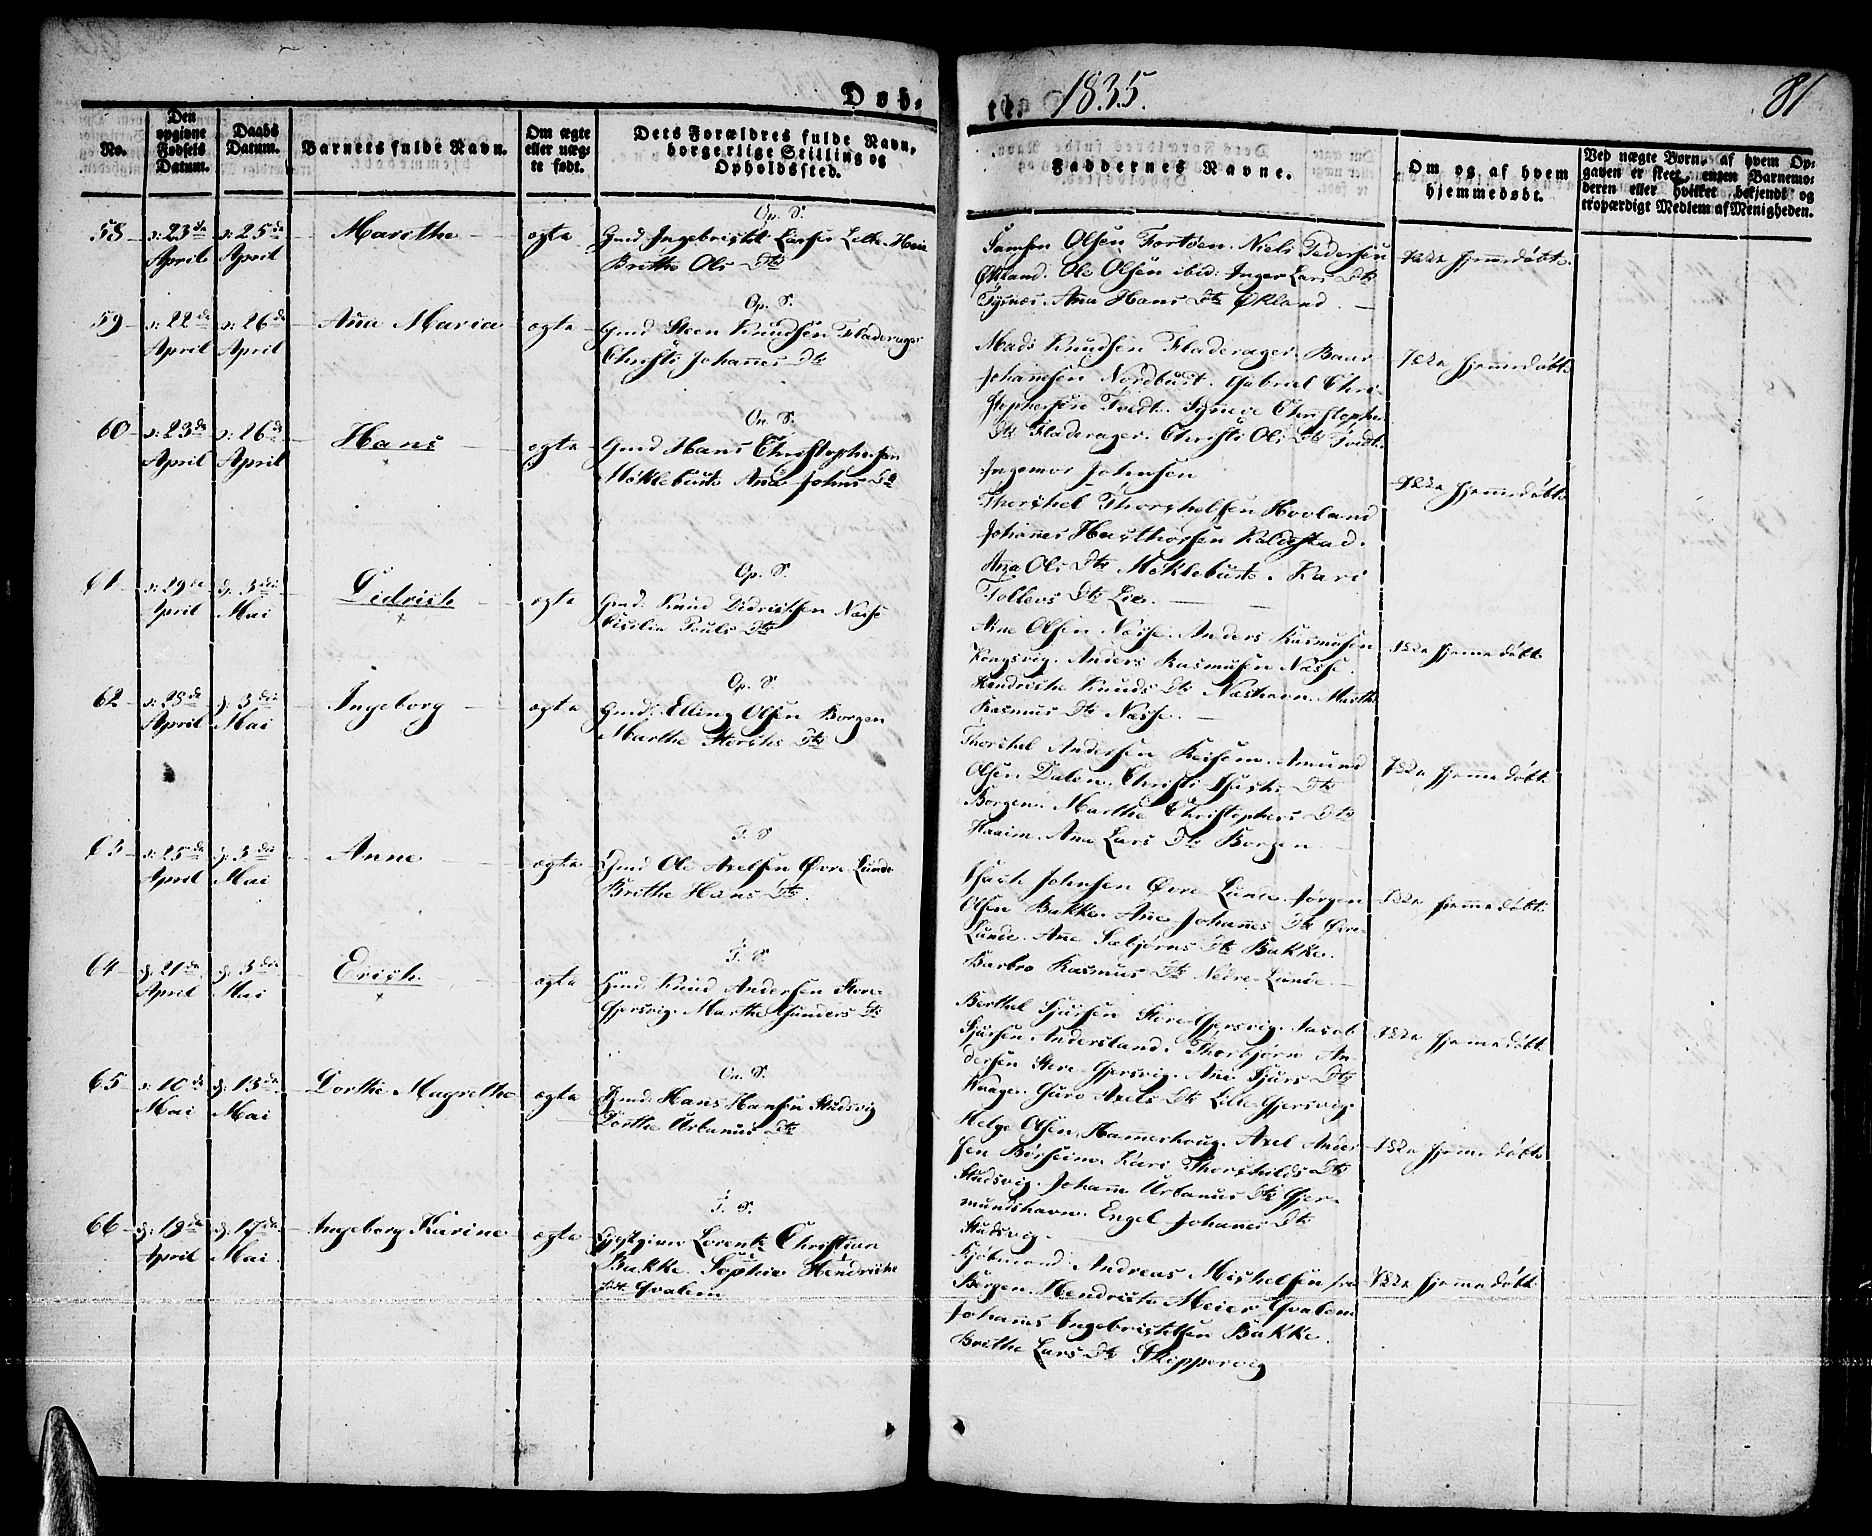 Døb-
te. 1835.
81
No.
Den opgivne Fødsels Datum.
Daabs Datum.
Barnets fulde Navn.
Om ægte eller uægte født.
Dets Forældres fulde Navn, borgerlige Stilling og Opholdssted.
Faddernes Navne.
Om og af hvem hjemmedøbt.
Ved uægte Børn, af hvem Opgaven er skeet, enten Barnemoderen eller hvilket bekjendt og troværdigt Medlem af Menigheden.
Op. S.
58 d: 23de d: 25de Marithe ægte Gmd Ingebrigt Larsen Lille
April April Brithe Ols Dtr
Samson Olsen Niels Pedersen
Økland. Ole Olsen ibid: Inger Lars Dtr
Tysnæs. Ana Hans Dtr Økland
ikke hjemmedøbt.
Op. S.
59 d: 22de d: 26de Ana Maria ægte Gmd Steen Knudsen Fladerager
April April Christi Johannes Dtr
Mads Knudsen Fladerager. Baar
Johannesen Nordbust. Gabriel Chri-
stophersen Tvedt. Synneve Christophers
Dtr Fladerager. Christi Ols Dtr Tvedt.
ikke hjemmedøbt
On. S.
60 d: 23de d: 26de Hans ægte Gmd Hans Christophersen
April April Møklebust. Ana Johns Dtr
Ingemor Johnsen
Thorchel Thorchelsen Hovland
Johannes Kaldestad.
Ana Ols Dtr Møklebust. Kari
Tollevs Dtr Lie.
ikke hjemmedøbt
Op. S.
61 d: 29de d. 3die Didrich ægte Gmd. Knud Didrichsen Næsse
April Mai Cicilia Pouls Dtr
Arne Olsen Næsse. Anders Rasmusen
Kongsvig. Anders Rasmusen Næsse.
Hendriche Knuds Dtr Næshavn. Marthe
Rasmus Dtr Næsse.
ikke hjemmedøbt
Op. S.
62 d: 28de d. 3die Ingeborg ægte Gmd. Elling Olsen Borgen
April Mai Marthe Dtr
Thorchel Andersen Amund
Olsen Dalen. Christi Dtr
Borgen. Marthe Christophers Dtr
Haaim. Ana Lars Dtr Borgen
ikke hjemmedøbt
T. S.
63 d: 25de d: 3die Anne ægte Gmd Ole Axelsen Øvre Lunde
April Mai Brithe Hans Dtr.
Johnsen Øvre Lunde. Jørgen
Olsen Bakke. Ane Johannes Dtr Øvre
Lunde. Ane Sæbjørns Dtr Bakke.
Barbro Rasmus Dtr Nedre Lunde.
ikke hjemmedøbt
T. S.
64 d. 21de d. 3die Erich ægte Gmd. Knud Andersen Store
April Mai Gjersvig. Marthe Gunders Dtr
Berthel Sjursen Store Gjersvig. Jacob
Sjursen Andersland. Thorbjørn An-
dersen Store Gjersvig. Ane Sjurs Dtr
Kaage. Guro Axels Dtr Lille Gjersvig.
ikke hjemmedøbt
On. S.
65 d: 10de d. 13de Dorthe Magrethe ægte Gmd. Hans Hansen Studsvig
Mai Mai Dorthe Urbanus Dtr
Helge Olsen Hammerhoug. Axel Ander-
sen Børseim. Kari Thorchilds Dtr
Studsvig. Johann Urbanus Dtr Gjer-
mundshavn. Engel Johannes Dtr
Studsvig.
ikke hjemmedøbt
T. S.
66 d. 19de d. 17de Ingeborg Karine ægte Gjestgiver Lorentz Christian
April Mai Bakke. Sophie Hendrikke
født Gvalem
Kjøbmand Andreas Michelsen fra
Bergen. Hendrich Meier Gvalem
Johannes Ingebrichtsen Bakke.
Brithe Lars Dtr Skippervig
ikke hjemmedøbt